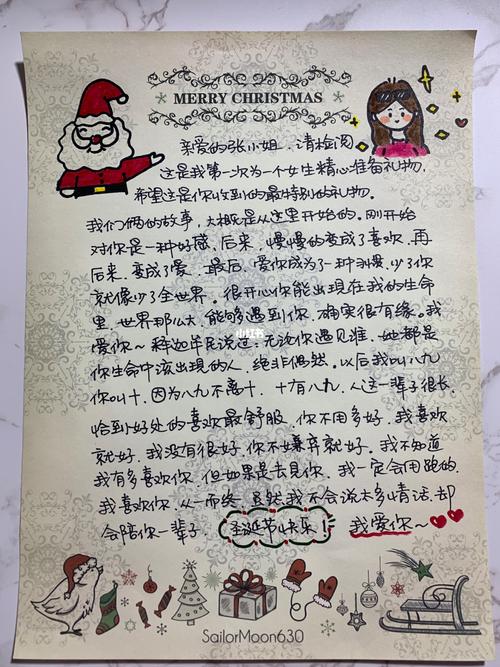 MERRY CHRISTMAS
亲爱的张小姐，请检阅
这是我第一次为一个女生精心准备礼物，
希望这是你收到的最特别的礼物。
我们俩的故事，大概是从这里开始的。刚开始
对你是一种好感，后来，慢慢的变成了喜欢，再
后来，变成了爱，最后，爱你成为了一种习惯，少了你
就像少了全世界。很开心你能出现在我的生命
里，世界那么大，能够遇到你，确实很有缘。我
爱你~释迦牟尼说过：无论你遇见谁，她都是
你生命中该出现的人，绝非偶然。以后我叫八九
你叫十，因为八九不离十，十有八九，从这一辈子很长，
恰到好处的喜欢最舒服，你不用多好，我喜欢
就好，我没有很好，你不嫌弃就好。我不知道
我有多喜欢你，但如果是去见你，我一定会用跑的，
我喜欢你，从一而终，虽然我不会说太多情话，却
会陪你一辈子，圣诞节快乐！ 我爱你~
小红书
SailorMoon630